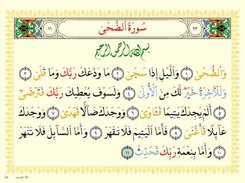 سُورَةُ الضُّحَىٰ
بِسْمِ اللَّهِ الرَّحْمَٰنِ الرَّحِيمِ
وَالضُّحَىٰ ١ وَاللَّيْلِ إِذَا سَجَىٰ ٢ مَا وَدَّعَكَ رَبُّكَ وَمَا قَلَىٰ ٣
وَلَلْآخِرَةُ خَيْرٌ لَكَ مِنَ الْأُولَىٰ ٤ وَلَسَوْفَ يُعْطِيكَ رَبُّكَ فَتَرْضَىٰ ٥
أَلَمْ يَجِدْكَ يَتِيمًا فَآوَىٰ ٦ وَوَجَدَكَ ضَالًّا فَهَدَىٰ ٧ وَوَجَدَكَ
عَائِلًا فَأَغْنَىٰ ٨ فَأَمَّا الْيَتِيمَ فَلَا تَقْهَرْ ٩ وَأَمَّا السَّائِلَ فَلَا تَنْهَرْ
١٠ وَأَمَّا بِنِعْمَةِ رَبِّكَ فَحَدِّثْ ١١